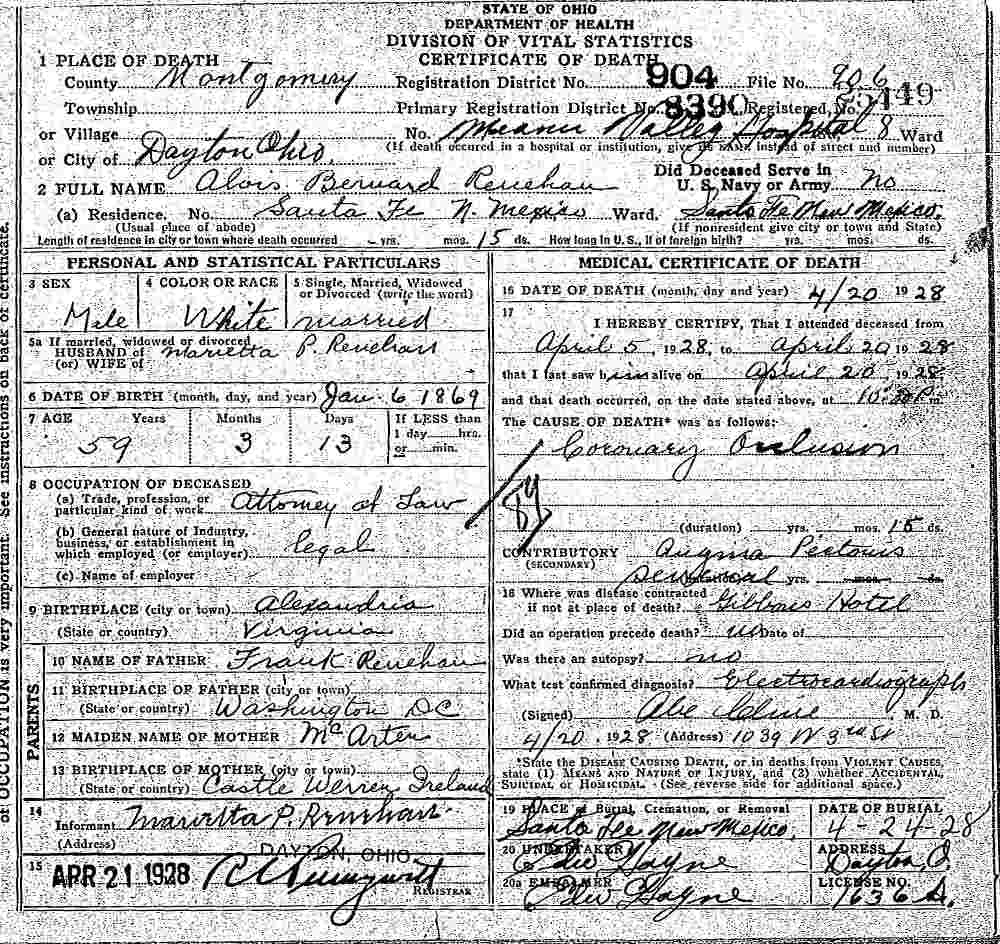 STATE OF OHIO
DEPARTMENT OF HEALTH
DIVISION OF VITAL STATISTICS
CERTIFICATE OF DEATH
1 PLACE OF DEATH
County Montgomery Registration District No. 904 File No. 906
Township Primary Registration District No. 8390 Registered No.
or Village No. Miami Valley Hospital St. 8 Ward
(If death occured in a hospital or institution, give its NAME instead of street and number)
or City of Dayton Ohio.
2 FULL NAME Alois Bernard Renehan Did Deceased Serve in U. S. Navy or Army No
(a) Residence. No. Santa Fe N. Mexico Ward. Santa Fe New Mexico.
(Usual place of abode) (If nonresident give city or town and State)
Length of residence in city or town where death occurred - yrs. mos. 15 ds. How long in U. S., if of foreign birth? yrs. mos. ds.
PERSONAL AND STATISTICAL PARTICULARS
3 SEX 4 COLOR OR RACE 5 Single, Married, Widowed or Divorced (write the word)
Male White married
5a If married, widowed or divorced
HUSBAND of Marietta P. Renehan
(or) WIFE of
6 DATE OF BIRTH (month, day, and year) Jan. 6 1869
7 AGE Years Months Days If LESS than
1 day hrs.
or min.
59 3 13
8 OCCUPATION OF DECEASED
(a) Trade, profession, or
particular kind of work Attorney at Law
(b) General nature of Industry,
business, or establishment in
which employed (or employer) legal
(c) Name of employer
9 BIRTHPLACE (city or town) Alexandria
(State or country) Virginia
PARENTS
10 NAME OF FATHER Frank Renehan
11 BIRTHPLACE OF FATHER (city or town)
(State or country) Washington DC
12 MAIDEN NAME OF MOTHER McArten
13 BIRTHPLACE OF MOTHER (city or town)
(State or country) Castle Ireland
14
Informant Marietta P. Renehan
(Address) DAYTON, OHIO
15 APR 21 1928
REGISTRAR
MEDICAL CERTIFICATE OF DEATH
16 DATE OF DEATH (month, day and year) 4/20 1928
17
I HEREBY CERTIFY, That I attended deceased from
April 5, 1928, to April 20 1928
that I last saw him alive on April 20, 1928
and that death occurred, on the date stated above, at m.
The CAUSE OF DEATH* was as follows:
Coronary Occlusion
89
(duration) yrs. mos. 15 ds.
CONTRIBUTORY Angina Pectoris
(SECONDARY)
several yrs. mos. ds.
18 Where was disease contracted
if not at place of death? Gibbons Hotel
Did an operation precede death? no Date of
Was there an autopsy? no
What test confirmed diagnosis? Electrocardiograph
(Signed) Abe Cline, M. D.
4/20, 1928 (Address) 1039 W 3rd St
*State the DISEASE CAUSING DEATH, or in deaths from VIOLENT CAUSES,
state (1) MEANS AND NATURE OF INJURY, and (2) whether ACCIDENTAL,
SUICIDAL or HOMICIDAL. (See reverse side for additional space.)
19 PLACE of Burial, Cremation, or Removal DATE OF BURIAL
Santa Fe New Mexico. 4-24-28
20 UNDERTAKER ADDRESS
Dayton, O.
20a EMBALMER LICENSE NO.
1636 A.
of OCCUPATION is very important. See instructions on back of certificate.